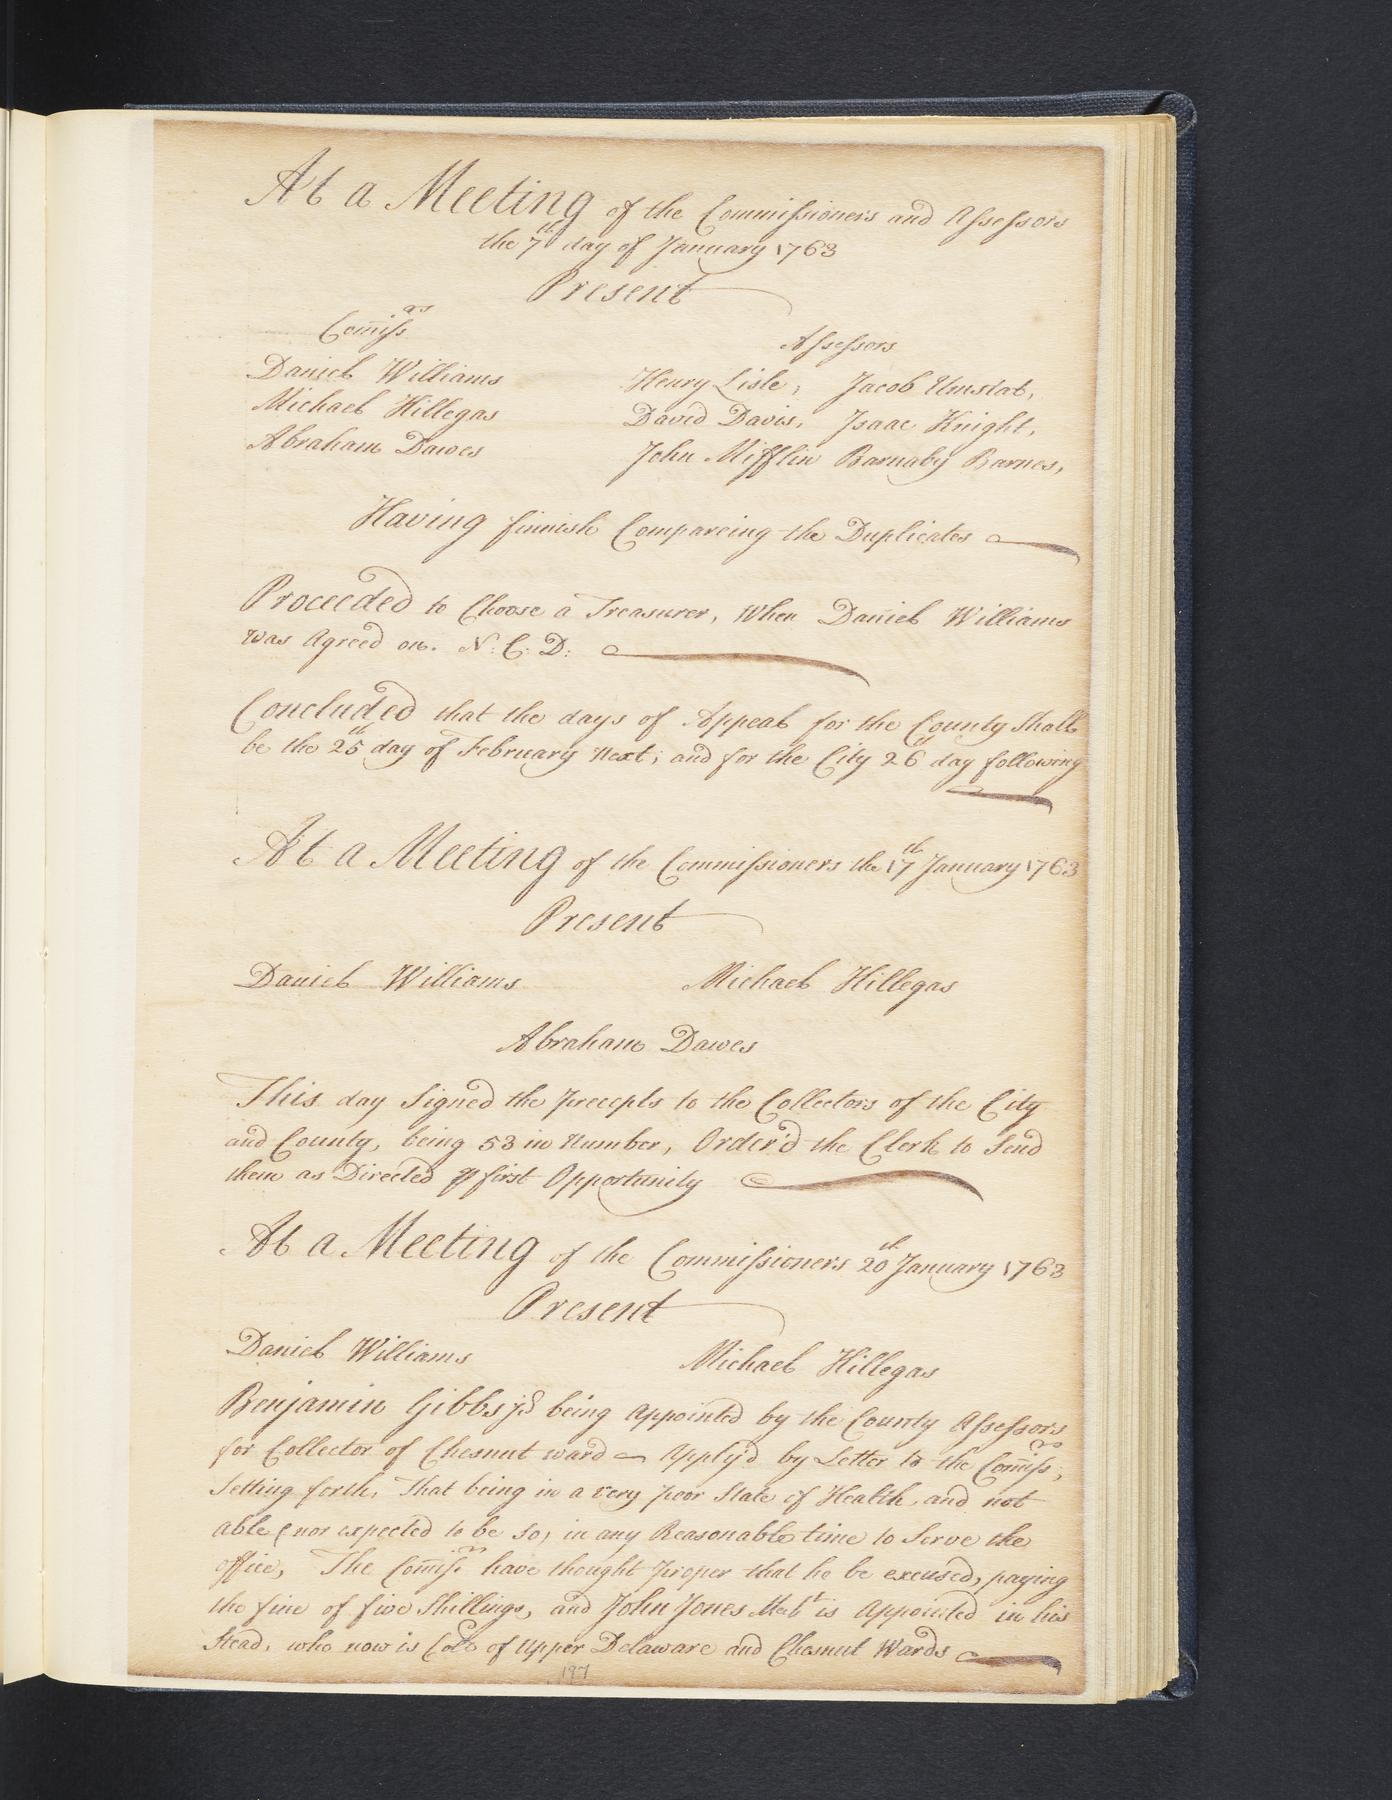 At a Meeting of the Commissioners and Assessors
the 7th day of January 1763
Present
Com̄issrs
Assessors
Daniel Williams
Henry Lisle, Jacob Umstat,
Michael Hillegas
David Davis, Isaac Knight,
Abraham Dawes
John Mifflin Barnaby Barnes,
Having finnish Compareing the Duplicates
Proceeded to Choose a Treasurer, When Daniel Williams
was Agreed on. N: C: D:
Concluded that the days of Appeal for the County Shall
be the 25th day of February Next; and for the City 26th day following
At a Meeting of the Commissioners the 17th January 1763
Present
Daniel Williams
Michael Hillegas
Abraham Dawes
This day Signed the precepts to the Collectors of the City
and County, being 53 in Number, Order'd the Clerk to Send
them as Directed ⅌ first Opportunity
At a Meeting of the Commissioners 20th January 1763
Present
Daniel Williams
Michael Hillegas
Benjamin Gibbs being Appointed by the County Assessors
for Collector of Chesnut ward Apply'd by Letter to the Com̄issrs;
Setting forth, That being in a very poor State of Health, and not
able (nor expected to be so) in any Reasonable time to Serve the
office, The Com̄issrs have thought proper that he be excused, paying
the fine of five Shillings, and John Jones is Appointed in his
Stead, who now is Col of Upper Delaware and Chesnut Wards
197